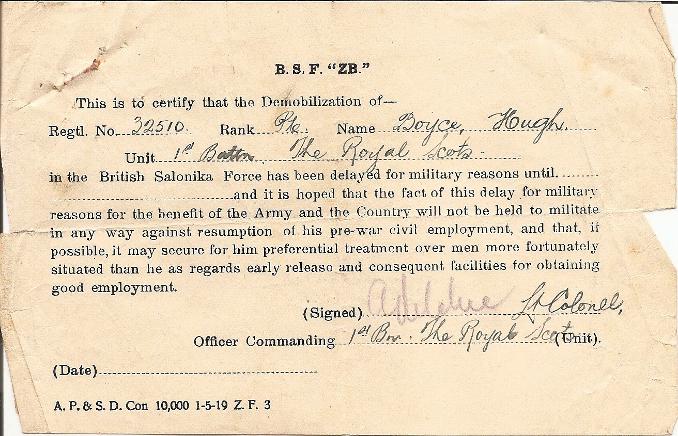 B. S. F. "ZB."
This is to certify that the Demobilization of—
Regtl. No. 32510. Rank Pte Name Boyce, Hugh.
Unit 1st Battn. The Royal Scots
in the British Salonika Force has been delayed for military reasons until..........
..............................and it is hoped that the fact of this delay for military
reasons for the benefit of the Army and the Country will not be held to militate
in any way against resumption of his pre-war civil employment, and that, if
possible, it may secure for him preferential treatment over men more fortunately
situated than he as regards early release and consequent facilities for obtaining
good employment.
(Signed) Lt Colonel,
Officer Commanding 1st Bn. The Royal Scots (Unit).
(Date)..............................
A. P. & S. D. Con 10,000 1-5-19 Z. F. 3